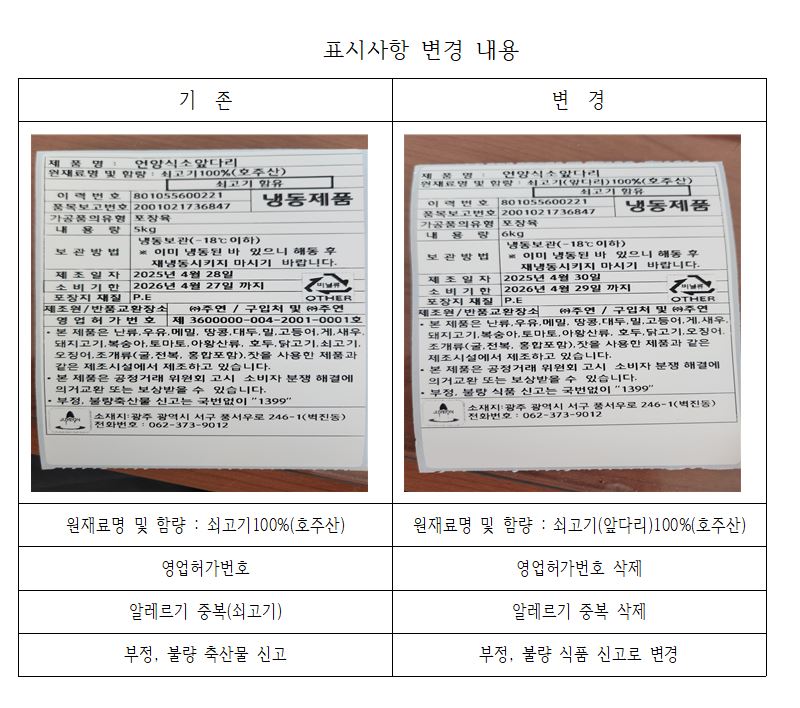 표시사항 변경 내용
기 존
변 경
제 품 명 : 언양식소앞다리
원재료명 및 함량 : 쇠고기100%(호주산)
쇠고기 함유
이 력 번 호 801055600221
품목보고번호 2001021736847
냉동제품
가공품의유형 포장육
내 용 량 5kg
보 관 방 법
냉동보관(-18℃이하)
※ 이미 냉동된 바 있으니 해동 후
재냉동시키지 마시기 바랍니다.
제 조 일 자 2025년 4월 28일
소 비 기 한 2026년 4월 27일 까지
포장지 재질 P.E
비닐류
OTHER
제조원/반품교환장소 ㈜주연 / 구입처 및 ㈜주연
영 업 허 가 번 호 제 3600000-004-2001-0001호
• 본 제품은 난류,우유,메밀, 땅콩,대두,밀,고등어,게,새우,
돼지고기,복숭아,토마토,아황산류, 호두,닭고기,쇠고기,
오징어,조개류(굴,전복, 홍합포함),잣을 사용한 제품과
같은 제조시설에서 제조하고 있습니다.
• 본 제품은 공정거래 위원회 고시 소비자 분쟁 해결에
의거교환 또는 보상받을 수 있습니다.
• 부정, 불량축산물 신고는 국번없이 "1399"
소재지:광주 광역시 서구 풍서우로 246-1(벽진동)
전화번호 : 062-373-9012
제 품 명 : 언양식소앞다리
원재료명 및 함량 : 쇠고기(앞다리)100%(호주산)
쇠고기 함유
이 력 번 호 801055600221
품목보고번호 2001021736847
냉동제품
가공품의유형 포장육
내 용 량 6kg
보 관 방 법
냉동보관(-18℃이하)
※ 이미 냉동된 바 있으니 해동 후
재냉동시키지 마시기 바랍니다.
제 조 일 자 2025년 4월 30일.
소 비 기 한 2026년 4월 29일 까지
포장지 재질 P.E
비닐류
OTHER
제조원/반품교환장소 ㈜주연 / 구입처 및 ㈜주연
• 본 제품은 난류,우유,메밀, 땅콩,대두,밀,고등어,게,새우,
돼지고기,복숭아,토마토,아황산류, 호두,닭고기,오징어,
조개류(굴,전복, 홍합포함),잣을 사용한 제품과 같은
제조시설에서 제조하고 있습니다.
• 본 제품은 공정거래 위원회 고시 소비자 분쟁 해결에
의거교환 또는 보상받을 수 있습니다.
• 부정, 불량 식품 신고는 국번없이 "1399"
소재지:광주 광역시 서구 풍서우로 246-1(벽진동)
전화번호 : 062-373-9012
원재료명 및 함량 : 쇠고기100%(호주산)
원재료명 및 함량 : 쇠고기(앞다리)100%(호주산)
영업허가번호
영업허가번호 삭제
알레르기 중복(쇠고기)
알레르기 중복 삭제
부정, 불량 축산물 신고
부정, 불량 식품 신고로 변경